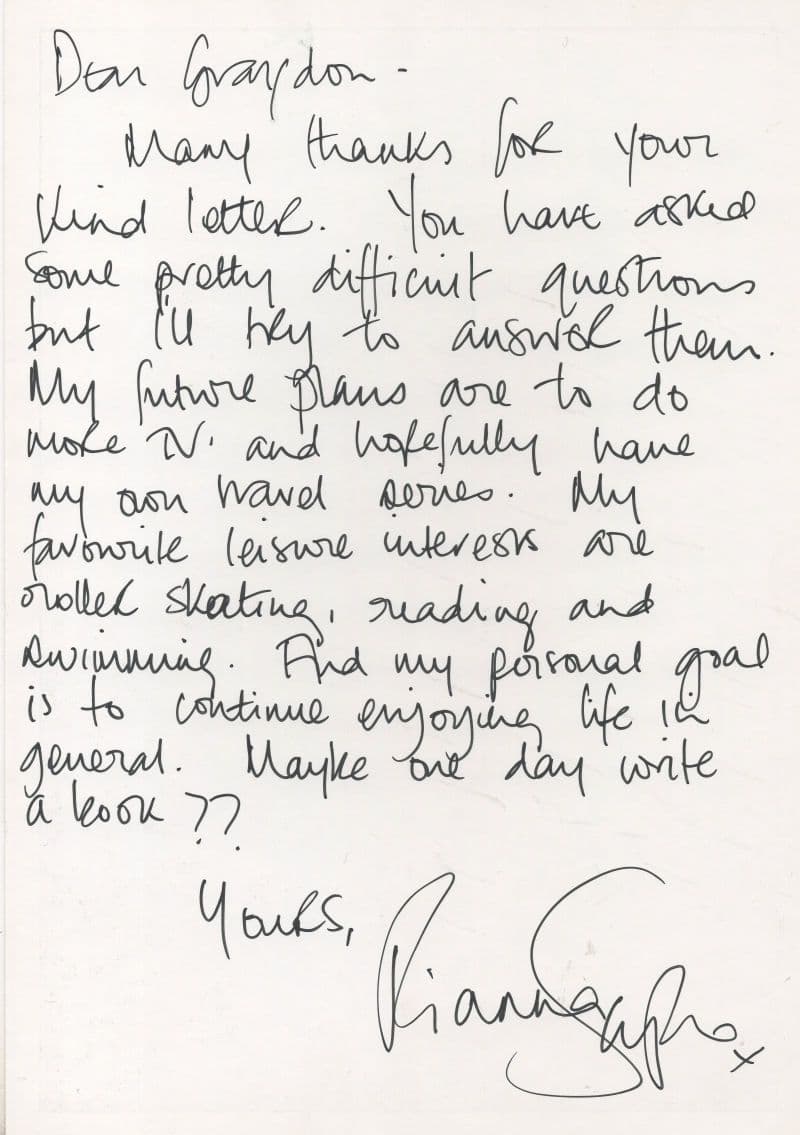 Dear Graydon -
Many thanks for your
kind letter. You have asked
some pretty difficult questions
but I'll try to answer them.
My future plans are to do
more T.V. and hopefully have
my own travel series. My
favourite leisure interests are
roller skating, reading and
swimming. And my personal goal
is to continue enjoying life in
general. Maybe one day write
a book ??
Yours,
Rianna
x